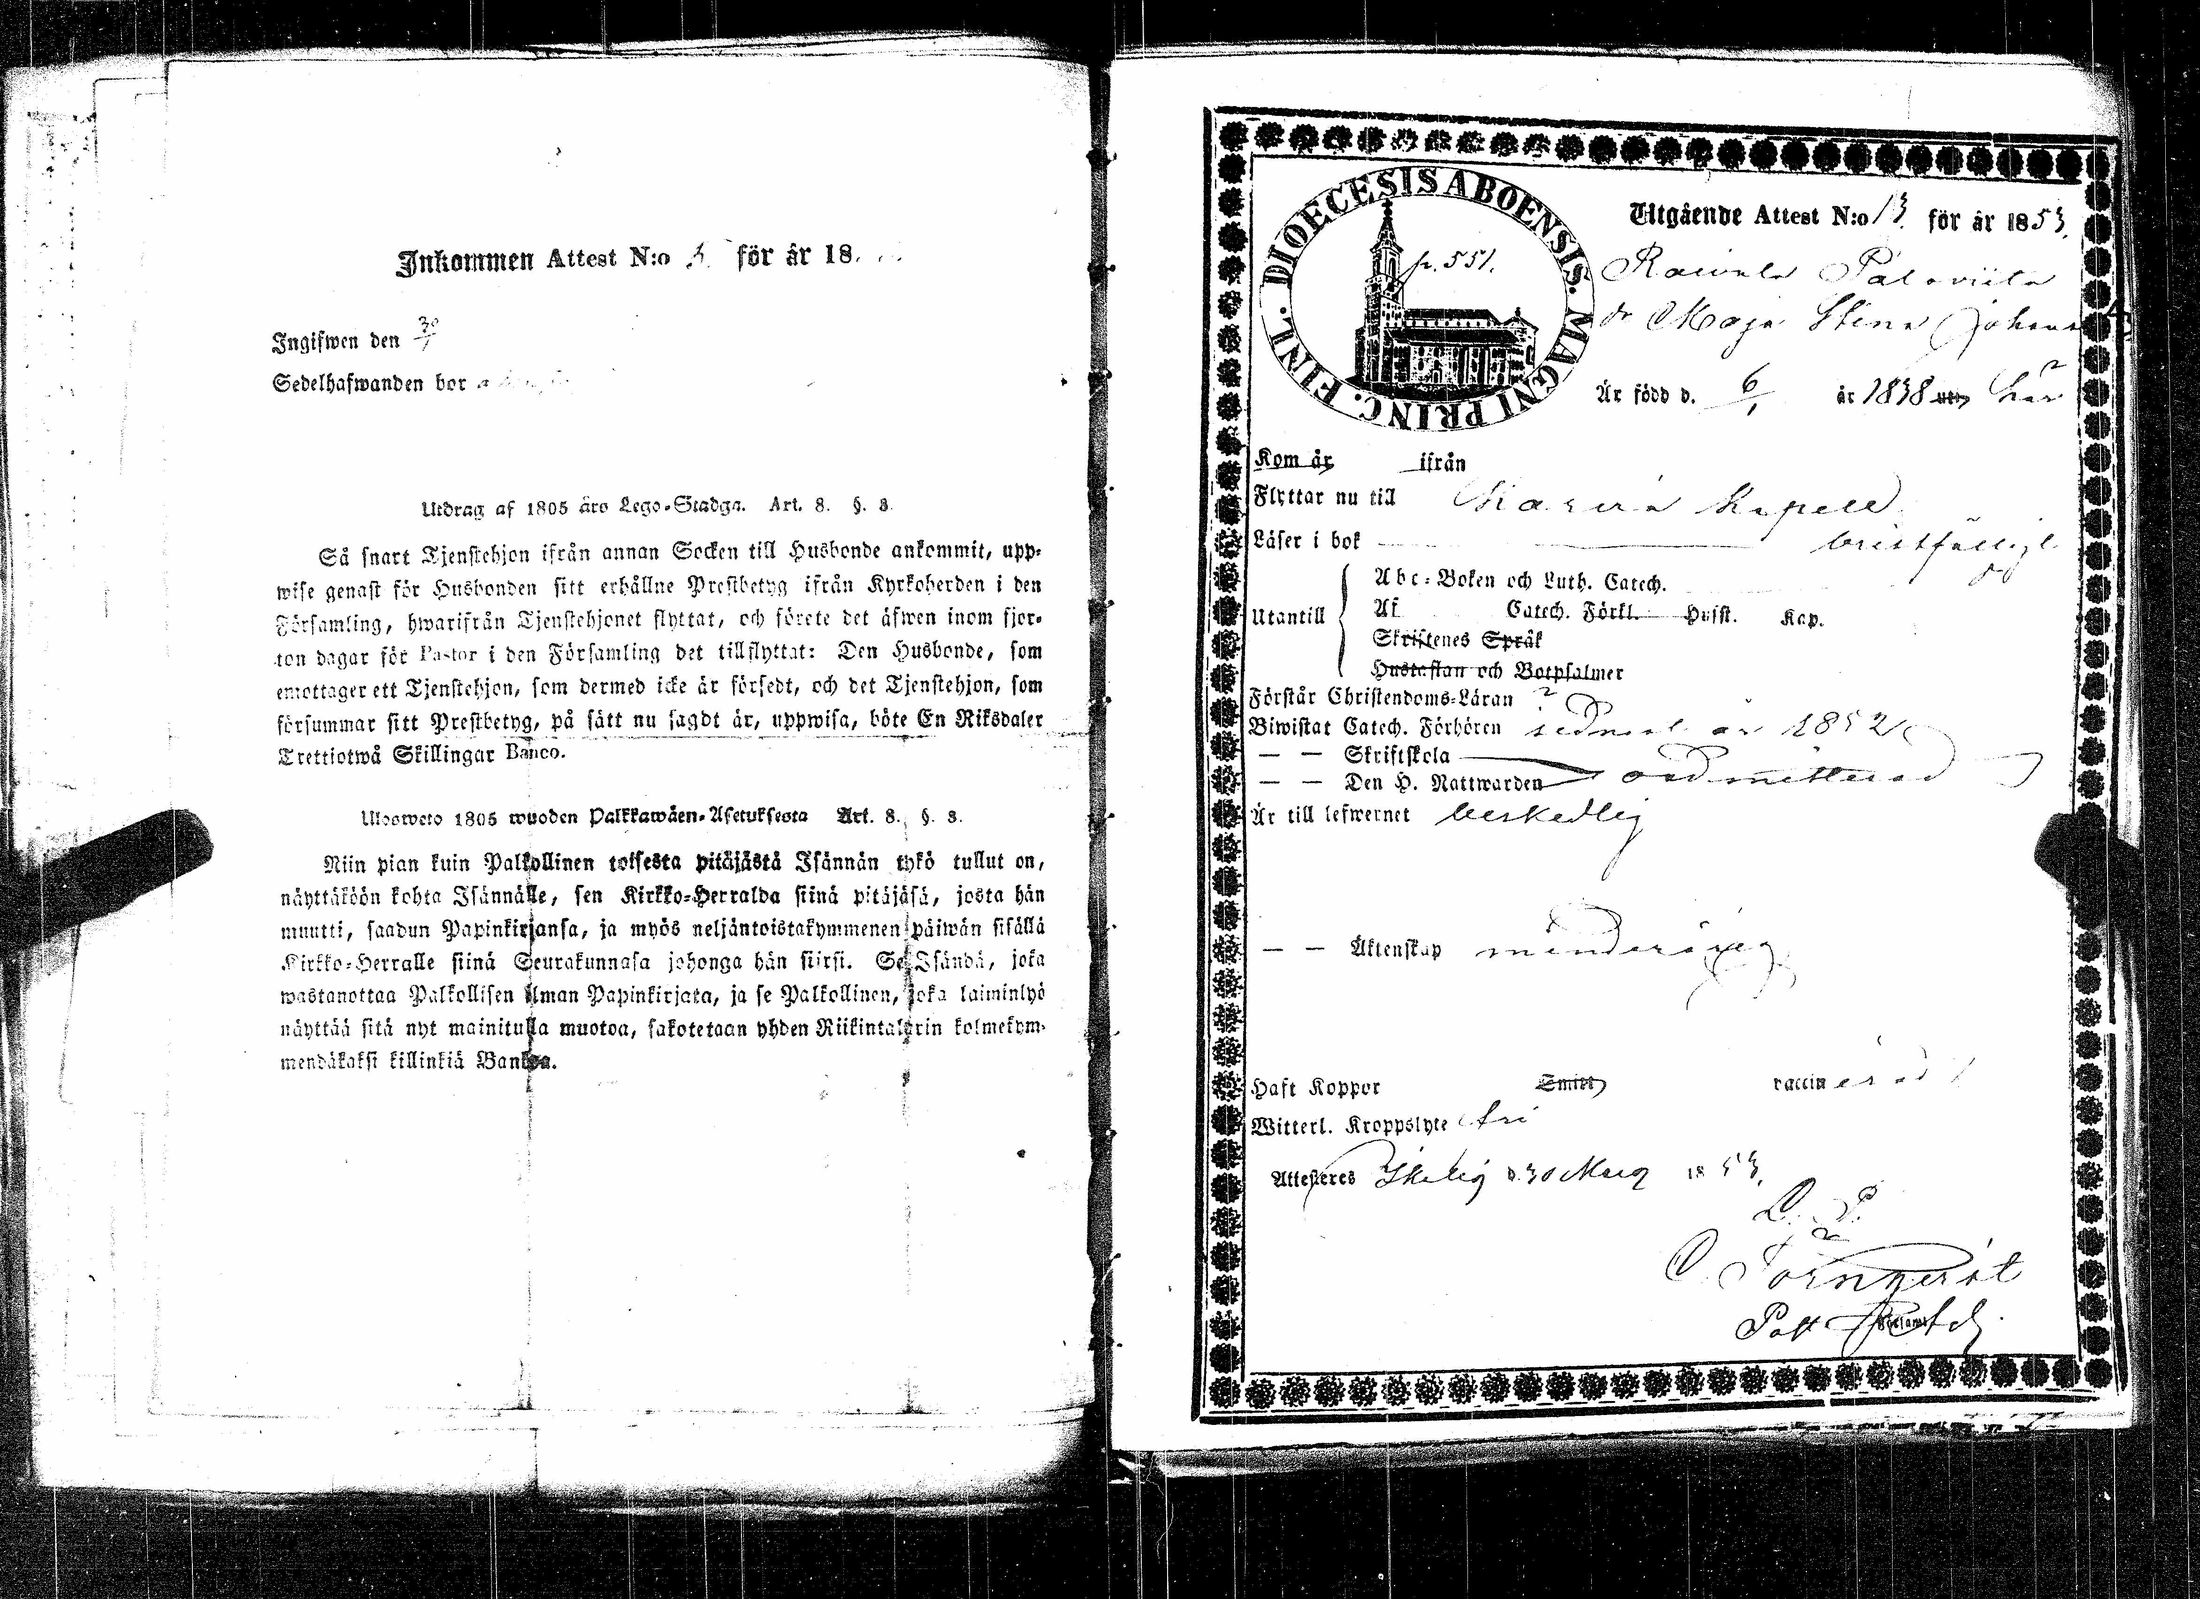 Inkommen Attest N:o 5. för år 18
Ingifwen den 30/7
Sedelhafwanden bor
Utdrag af 1805 års Lego-Stadga. Art. 8. §. 3.
Så snart Tjenstehjon ifrån annan Socken till Husbonde ankommit, upp-
wise genast för Husbonden sitt erhållne Prestbetyg ifrån Kyrkoherden i den
Församling, hwarifrån Tjenstehjonet flyttat, och förete det äfwen inom fjor-
ton dagar för Pastor i den Församling det tillflyttat: Den Husbonde, som
emottager ett Tjenstehjon, som dermed icke är försedt, och det Tjenstehjon, som
försummar sitt Prestbetyg, på sätt nu sagdt är, uppwisa, böte En Riksdaler
Trettiotwå Skillingar Banco.
Ulosweto 1805 wuoden Palkkawäen-Asetuksesta Art. 8. §. 3.
Niin pian kuin Palkollinen toisesta pitäjästä Isännän tykö tullut on,
näyttäköön kohta Isännälle, sen Kirkko-Herralda siinä pitäjäsä, josta hän
muutti, saadun Papinkirjansa, ja myös neljäntoistakymmenen päiwän sisällä
Kirkko-Herralle siinä Seurakunnasa johonga hän siirsi. Se Isändä, joka
wastanottaa Palkollisen ilman Papinkirjata, ja se Palkollinen, joka laiminlyö
näyttää sitä nyt mainitulla muotoa, sakotetaan yhden Riikintalarin kolmekym-
mendäkaksi killinkiä Bankoa.
DIOECESIS ABOENSIS. MAGNI PRINC. FINL.
p. 551.
Utgående Attest N:o 13. för år 1853.
Raivala Paloviita
dr Maja Stina Johans
Är född d. 6/1 år 1838 uti här
Kom år ifrån
Flyttar nu till Kapell
Läser i bok bristfälligt
Utantill
Abc-Boken och Luth. Catech.
Af Catech. Förkl. Hufst. Kap.
Skriftenes Språk
Hustaflan och Botpsalmer
Förstår Christendoms-Läran
Biwistat Catech. Förhören sednast år 1852
— — Skriftskola
— — Den H. Nattwarden oadmitterad
Är till lefwernet beskedlig
— — Äktenskap minderårig
Haft Koppor Smitt vaccinerad
Witterl. Kroppslyte fri
Attesteres d. 30 1853.